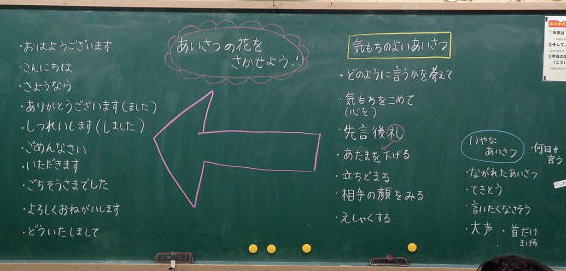 ・おはようございます
・こんにちは
・さようなら
・ありがとうございます(ました)
・しつれいします(しました)
・ごめんなさい
・いただきます
・ごちそうさまでした
・よろしくおねがいします
・どういたしまして
あいさつの花を
さかせよう!
気もちのよいあいさつ
・どのように言うかを考えて
・気もちをこめて
(心を)
・先言後礼
・あたまを下げる
・立ちどまる
・相手の顔をみる
・えしゃくする
いやな
あいさつ
・何回も
言う
・ながれたあいさつ
・てきとう
・言いたくなさそう
・大声
・首だけ
まげる